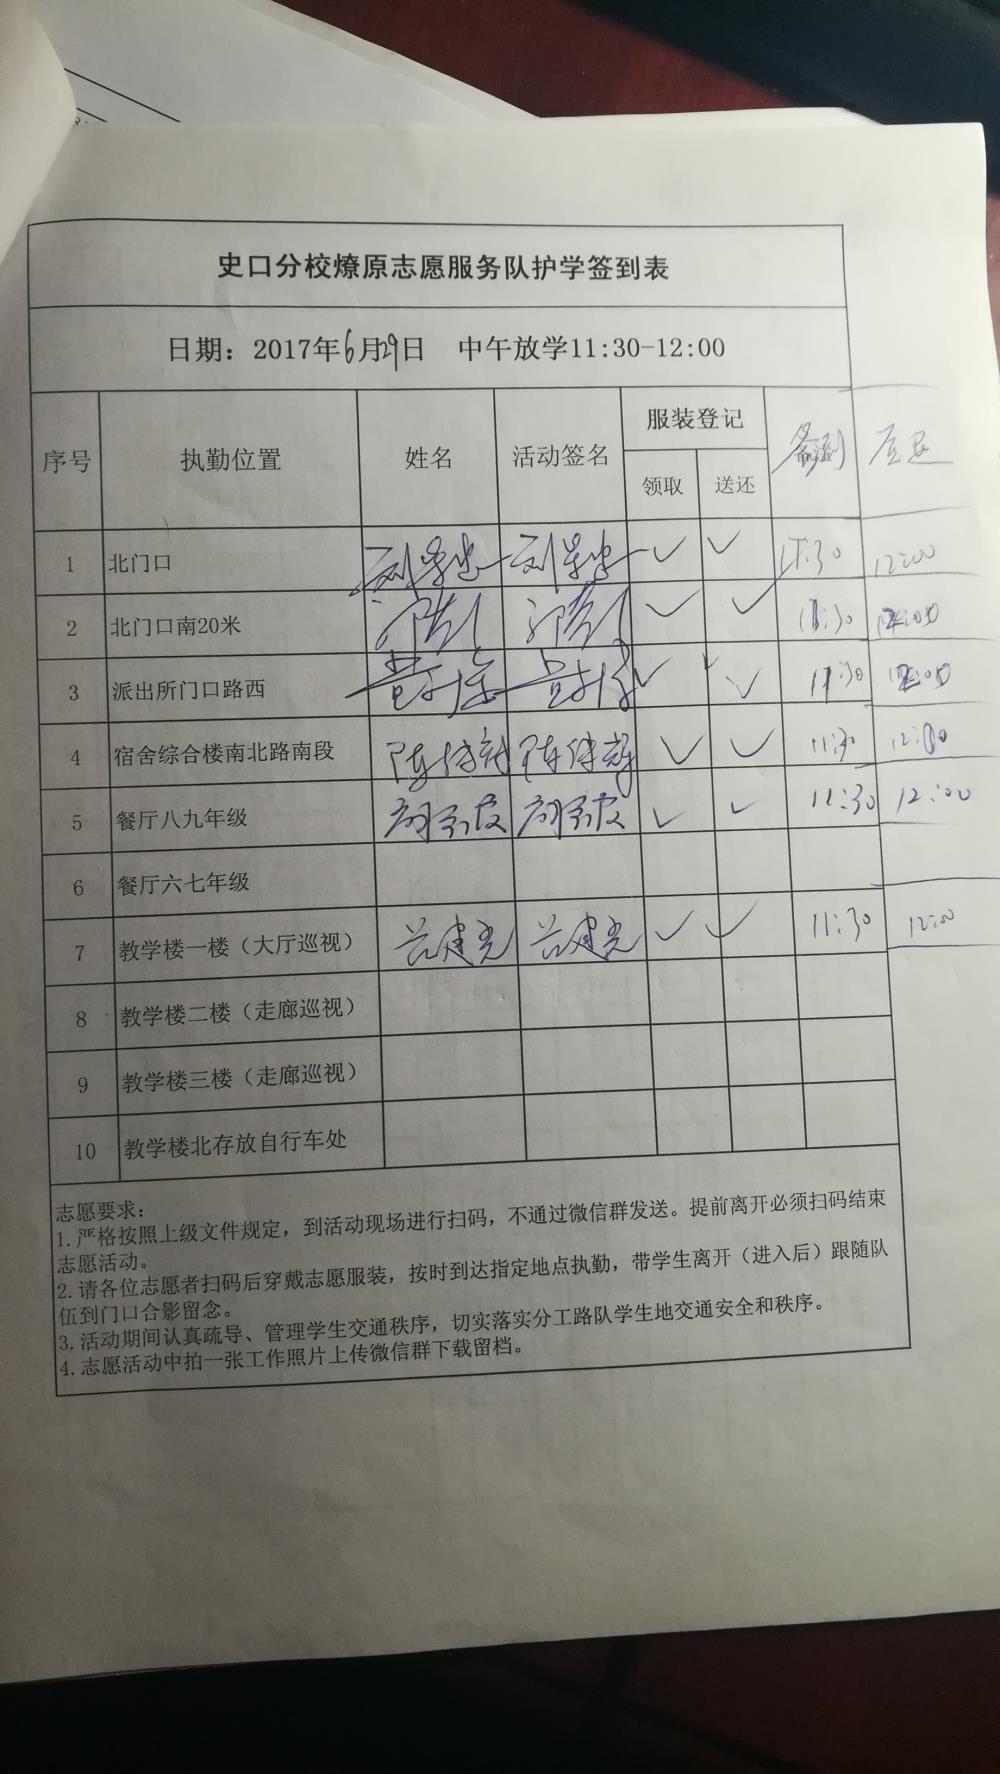 史口分校燎原志愿服务队护学签到表
日期：2017年6月29日 中午放学11:30-12:00
序号 执勤位置 姓名 活动签名 服装登记
领取 送还
1 北门口 ✓ ✓ 11:30 12:00
2 北门口南20米 ✓ ✓ 11:30
3 派出所门口路西 ✓ ✓ 11:30
4 宿舍综合楼南北路南段 ✓ ✓ 11:30 12:00
5 餐厅八九年级 ✓ ✓ 11:30 12:00
6 餐厅六七年级
7 教学楼一楼（大厅巡视） ✓ ✓ 11:30 12:00
8 教学楼二楼（走廊巡视）
9 教学楼三楼（走廊巡视）
10 教学楼北存放自行车处
志愿要求：
1.严格按照上级文件规定，到活动现场进行扫码，不通过微信群发送。提前离开必须扫码结束
志愿活动。
2.请各位志愿者扫码后穿戴志愿服装，按时到达指定地点执勤，带学生离开（进入后）跟随队
伍到门口合影留念。
3.活动期间认真疏导、管理学生交通秩序，切实落实分工路队学生地交通安全和秩序。
4.志愿活动中拍一张工作照片上传微信群下载留档。